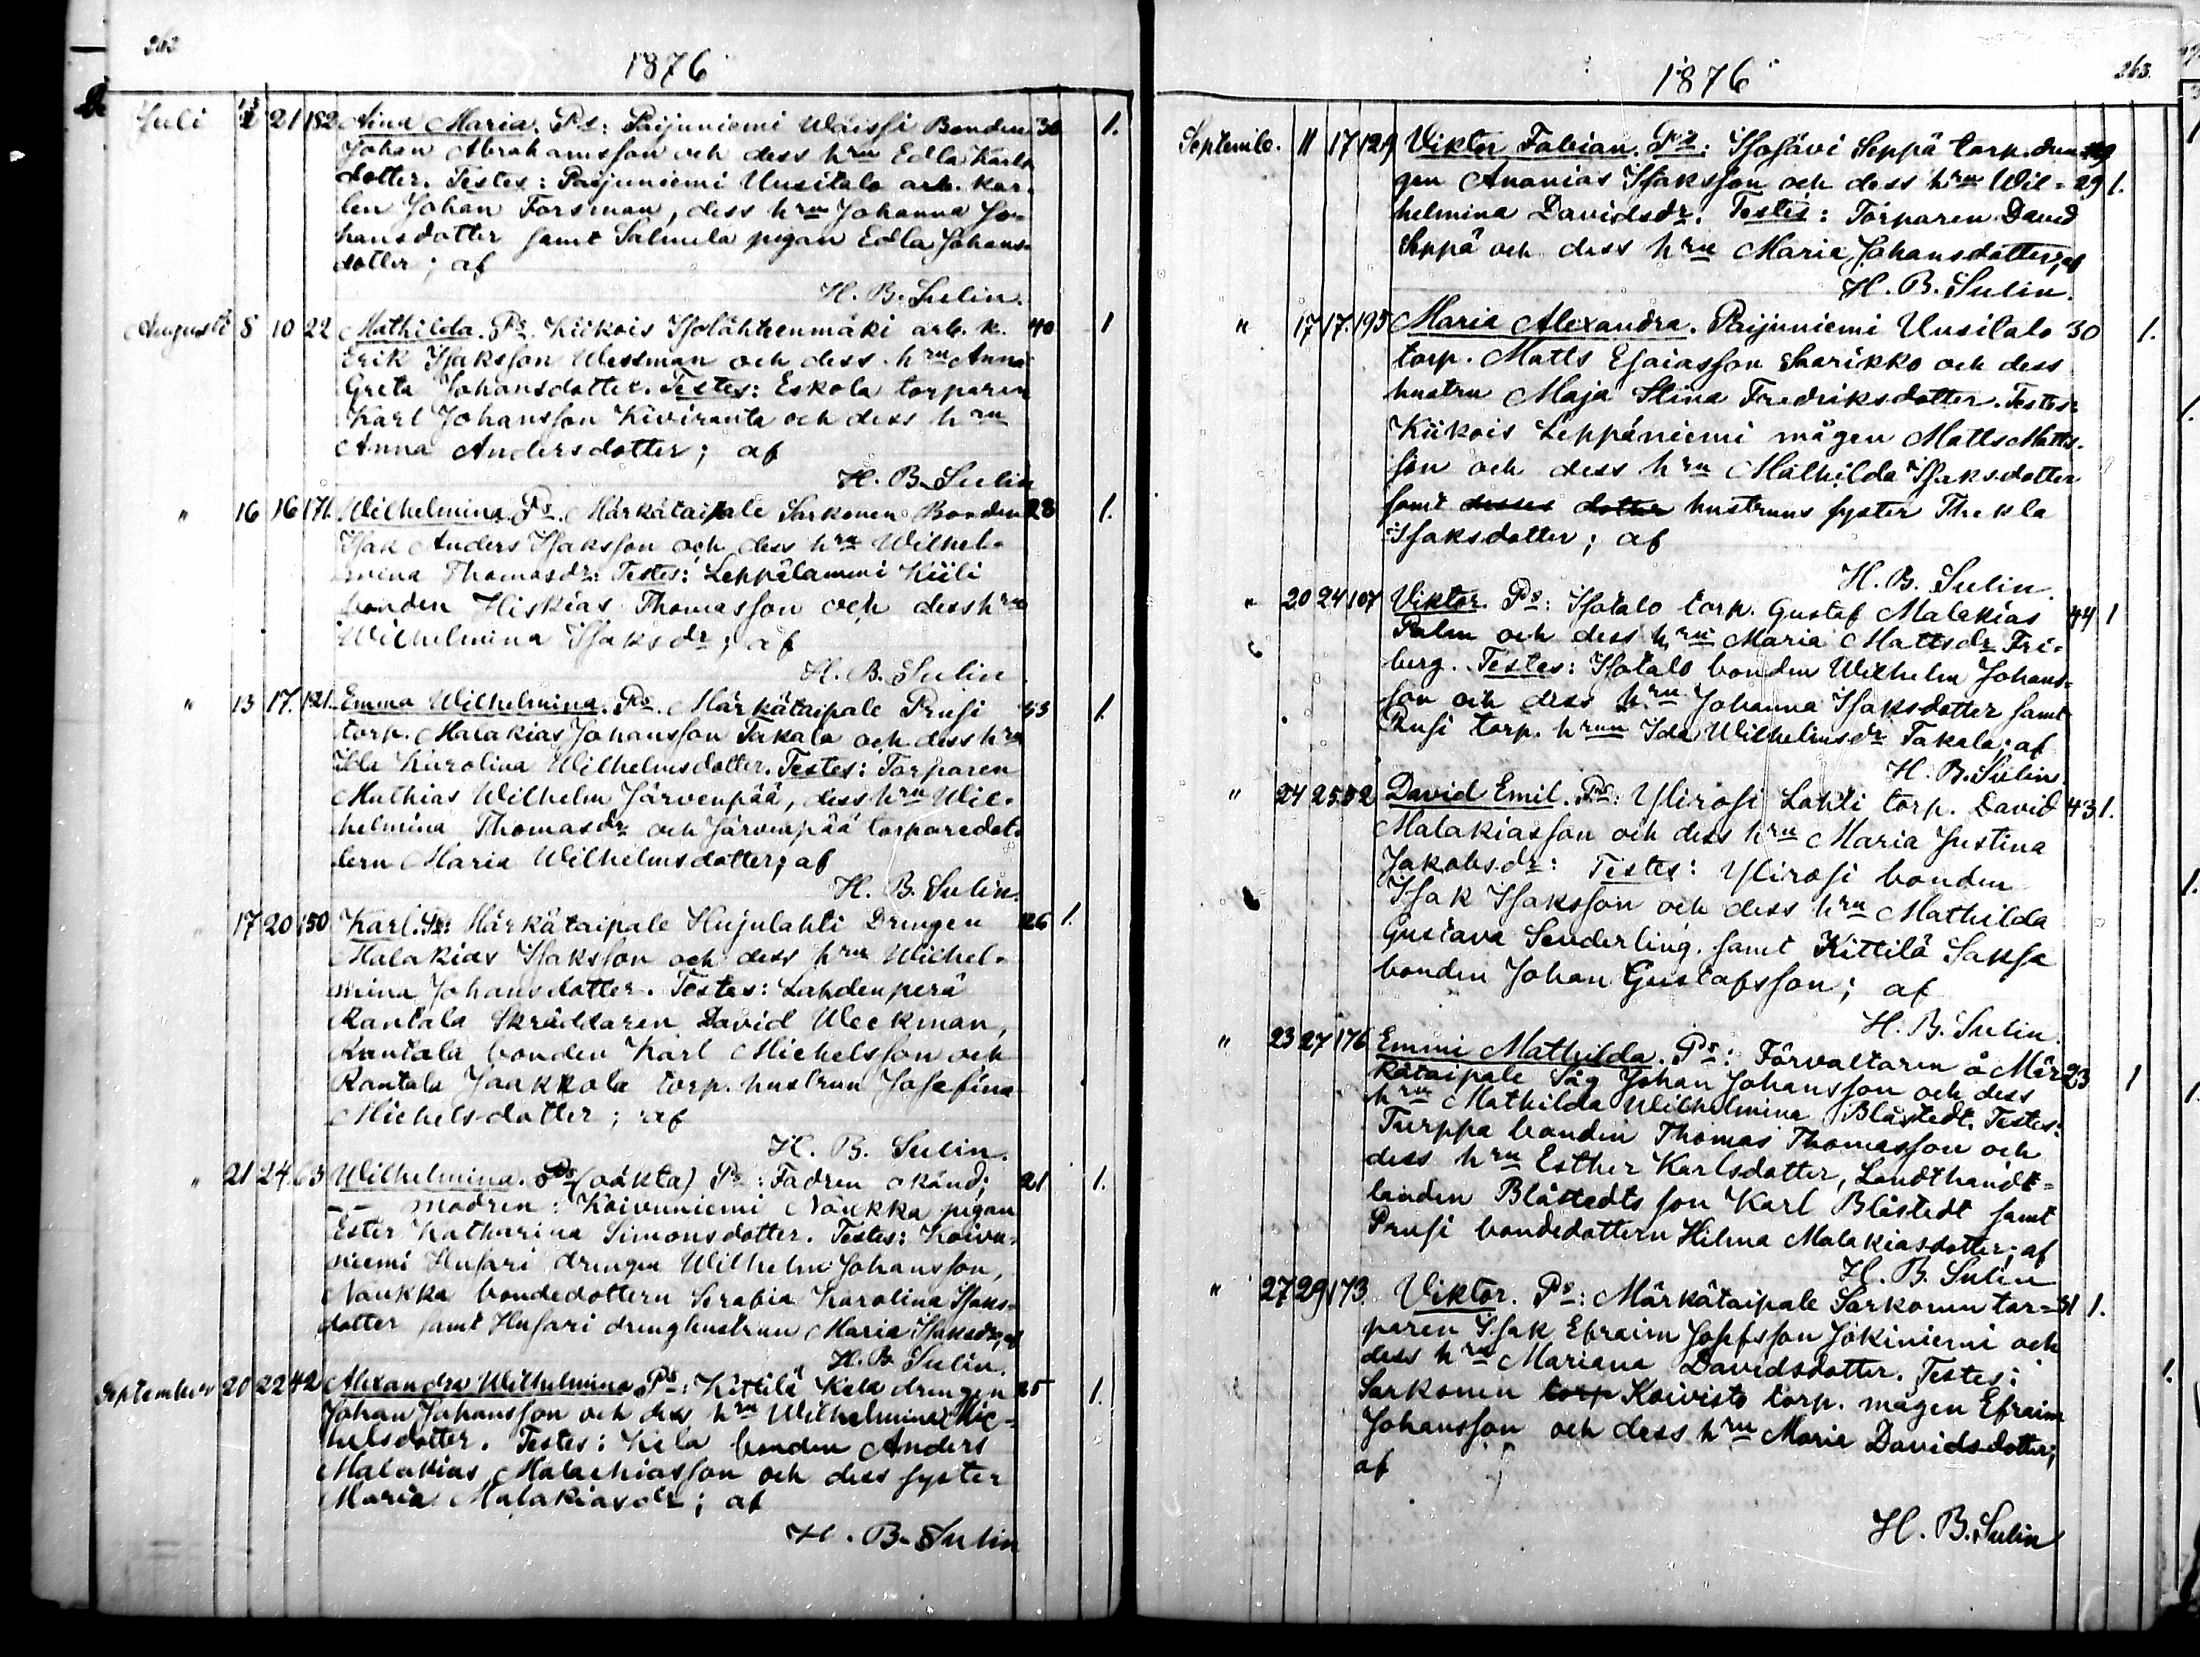 262
1876
Juli 13 21 182 Aina Maria. Ps: Paijuniemi Wäissi Bonden 30 1.
Johan Abrahamsson och dess hru Edla Karls
dotter. Testes: Paijuniemi Uusitalo arb. kar-
len Johan Forsman, dess hru Johanna Jo-
hansdotter samt Salmela pigan Edla Johans-
dotter; af
H. B. Sulin.
Augusti 8 10 22 Mathilda. Ps. Kiikois Isolähteenmäki arb. k. 40 1
Erik Isaksson Wessman och dess hru Anna
Greta Johansdotter. Testes: Eskola torparen
Karl Johansson Kiviranta och dess hru
Anna Andersdotter; af
H. B. Sulin
" 16 16 171. Wilhelmina. Ps. Märkätaipale Sarkonen Bonden 28 1.
Isak Anders Isaksson och dess hru Wilhel-
mina Thomasdr: Testes: Leppälammi Kiili
bonden Hiskias Thomasson och dess hru
Wilhelmina Isaksdr; af
H. B. Sulin
" 13 17. 121. Emma Wilhelmina. Ps. Märkätaipale Prusi 33 1.
torp. Malakias Johansson Takala och dess hru
Ida Karolina Wilhelmsdotter. Testes: Torparen
Mathias Wilhelm Järvenpää, dess hru Wil-
helmina Thomasdr och Järvenpää torparedot-
tern Maria Wilhelmsdotter; af
H. B. Sulin.
" 17 20 150 Karl. Ps: Märkätaipale Hujulahti Drengen 26 1.
Malakias Isaksson och dess hru Wilhel-
mina Johansdotter. Testes: Lahdenperä
Rantala Skräddaren David Weckman,
Rantala bonden Karl Michelsson och
Rantala Jaakkola torp. hustrun Josefina
Michelsdotter; af
H. B. Sulin.
" 21 24. 63 Wilhelmina. Ps (oäkta) Ps: Fadren okänd; 21 1.
- - modren: Koivuniemi Naukka pigan
Ester Katharina Simonsdotter. Testes: Koivu-
niemi Husari drengen Wilhelm Johansson,
Naukka bondedottern Serafia Karolina Isaks-
dotter samt Husari drenghustrun Maria Isaksdr; af
H. B. Sulin.
September 20 22 42 Alexandra Wilhelmina. Ps: Kittilä Kela drengen 25 1.
Johan Johansson och dess hru Wilhelmina Mic-
helsdotter. Testes: Kela bonden Anders
Malakias Malachiasson och dess syster
Maria Malakiasdr; af
H. B. Sulin
263.
1876
Septemb. 11 17 129 Viktor Fabian. Ps: Isosävi Seppä torp. dren-
gen Ananias Isaksson och dess hru Wil- 29 1.
helmina Davidsdr. Testes: Torparen David
Seppä och dess hru Maria Johansdotter; af
H. B. Sulin.
" 17 17. 195 Maria Alexandra. Paijuniemi Uusitalo 30 1.
torp. Matts Esaiasson Saarikko och dess
hustru Maja Stina Fredriksdotter. Testes:
Kiikois Leppäniemi mågen Matts Matts-
son och dess hru Mathilda Isaksdotter
samt desses dotter hustruns syster Thekla
Isaksdotter; af
H. B. Sulin.
" 20 24 107 Viktor. Ps: Isotalo torp. Gustaf Malakias 44 1
Palm och dess hru Maria Mattsdr Fri-
berg. Testes: Isotalo bonden Wilhelm Johans-
son och dess hru Johanna Isaksdotter samt
Prusi torp. hrun Ida Wilhelmsdr Takala; af
H. B. Sulin.
" 24 25. 82 David Emil. Ps: Ylirosi Lahti torp. David 43 1.
Malakiasson och dess hru Maria Justina
Jakobsdr: Testes: Ylirosi bonden
Isak Isaksson och dess hru Mathilda
Gustava Senderling. samt Kittilä Saksa
bonden Johan Gustafsson; af
H. B. Sulin.
" 23 27 176 Emmi Mathilda. Ps: Förvaltaren å Mär- 23 1
kätaipale Såg Johan Johansson och dess
hru Mathilda Wilhelmina Blåstedt. Testes:
Turppa bonden Thomas Thomasson och
dess hru Esther Karlsdotter, Landthandt-
landen Blåstedts son Karl Blåstedt samt
Prusi bondedottern Hilma Malakiasdotter; af
H. B. Sulin
" 27 29 173. Viktor. Ps: Märkätaipale Sarkonen tor- 31 1.
paren Isak Efraim Josefsson Jokiniemi och
dess hru Mariana Davidsdotter. Testes:
Sarkonen torp Koivisto torp. mågen Efraim
Johansson och dess hru Maria Davidsdotter;
af
H. B. Sulin